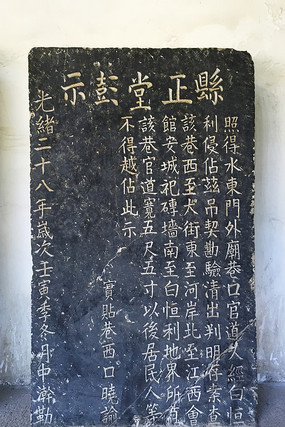 縣正堂彭示
照得水東門外廟巷口官道久經白恒
利侵佔茲吊契勘驗清出判明存案查
該巷西至大街東至河岸北至江西會
館安城祀磚墻南至白恒利地界所有
該巷官道寬五尺五寸以後居民人等
不得越佔此示
實貼巷西口曉諭
光緒二十八年歲次壬寅季冬月中瀚勒